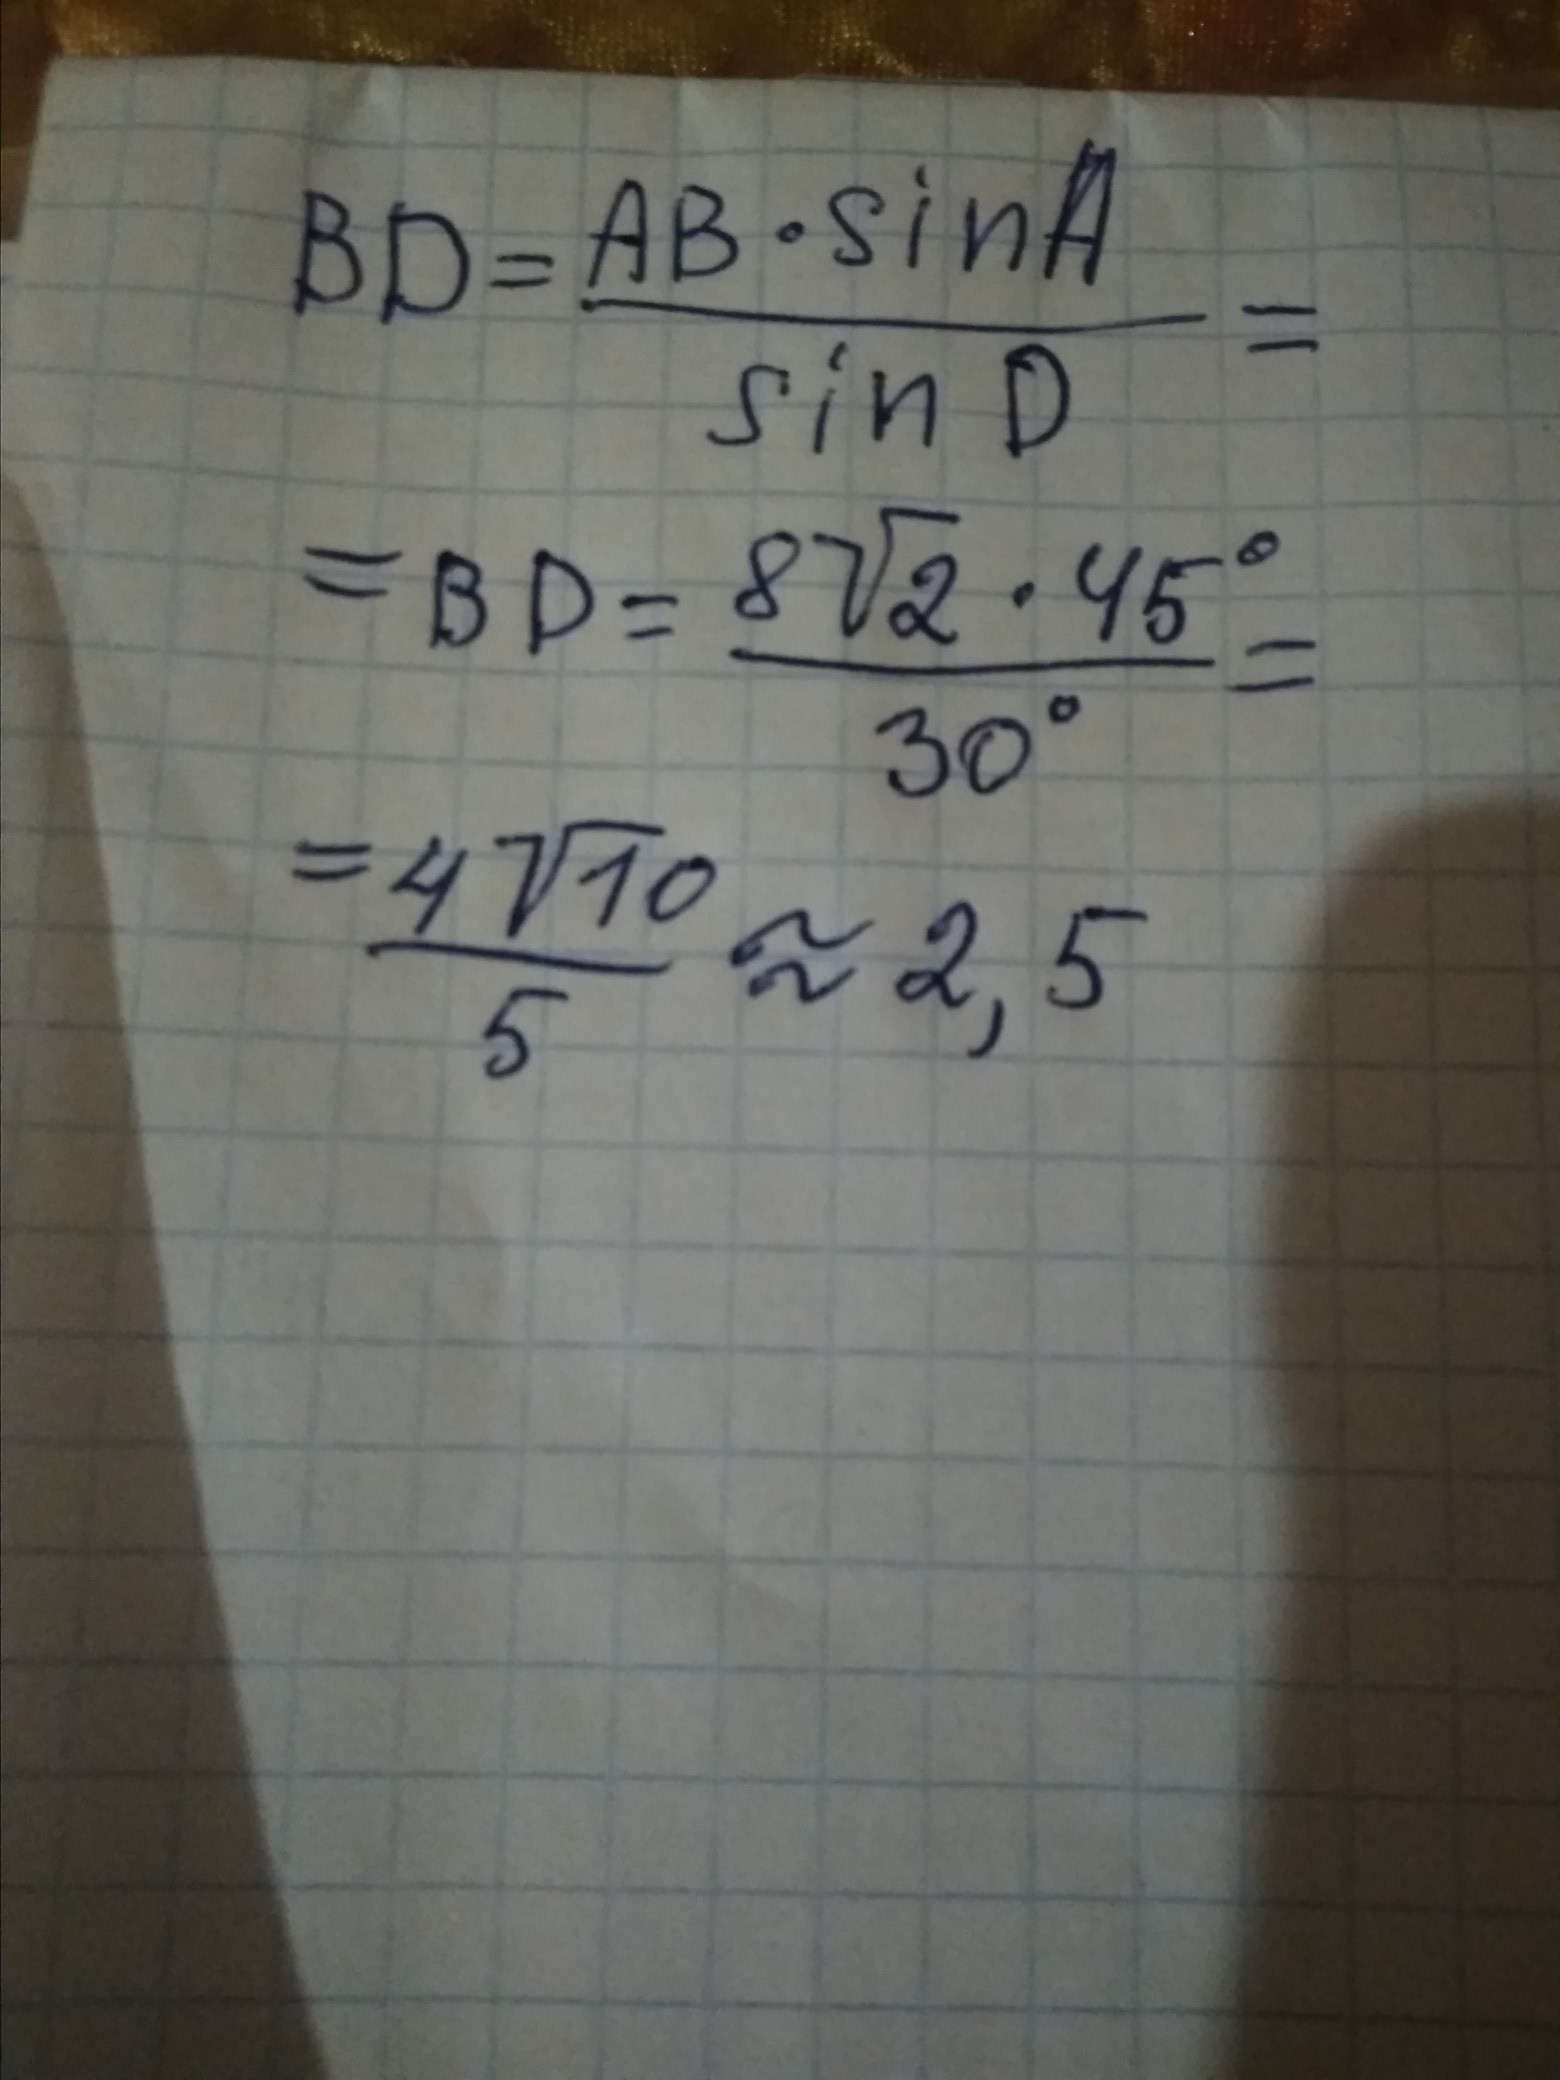 BD = AB · sin A / sin D =
= BD = 8√2 · 45° / 30° =
= 4√10 / 5 ≈ 2,5